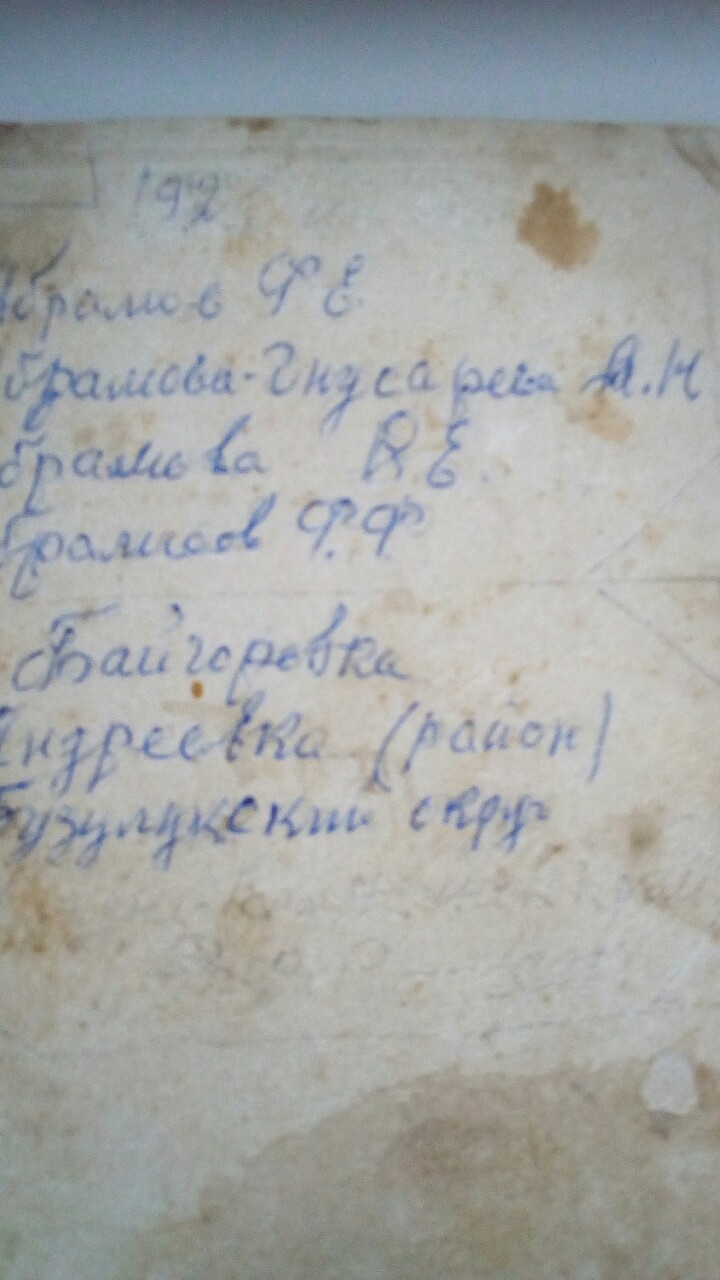 192
Абрамов Ф Е
Абрамова-Гнусарева М.Н
Абрамова Е.
Абрамов Ф.Ф
Байгоровка
Андреевка (район)
Бузулукский округ